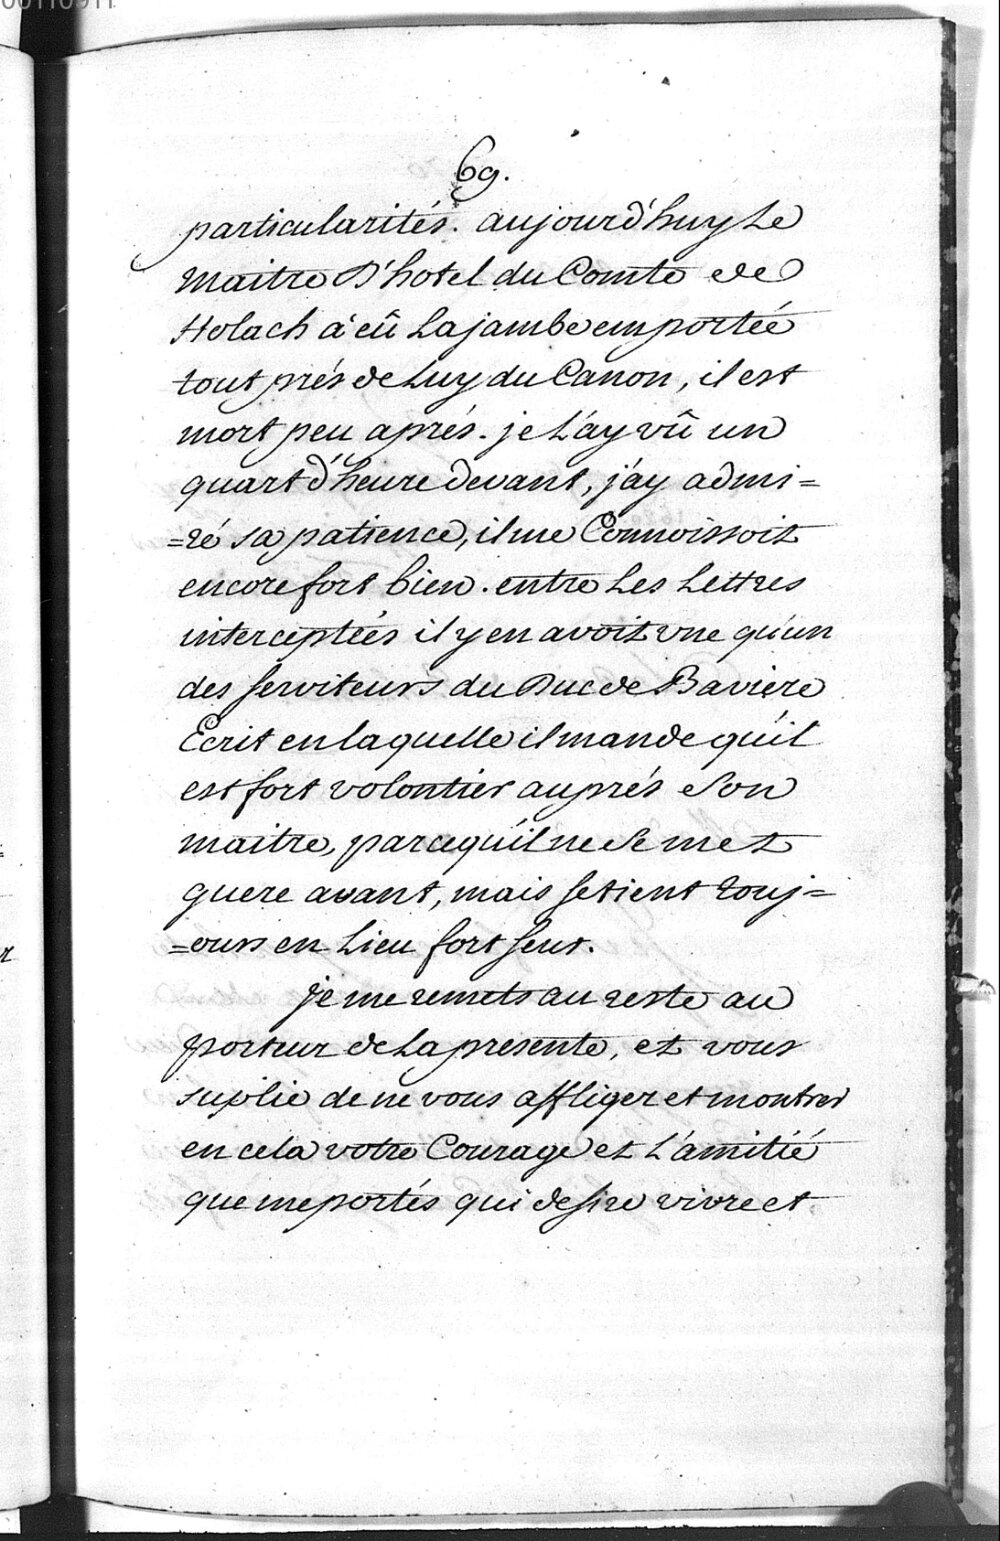 00110911
69.
particularités. aujourd'huy Le
maitre D'hotel du Comte de
Holach à eû La jambe emportée
tout prés de Luy du Canon, il est
mort peu aprés. je L'ay vû un
quart d'heure devant, j'ay admi=
=ré sa patience, il me Connoissoit
encore fort bien. entre Les Lettres
interceptées il y en avoit vne qu'un
des serviteurs du Duc de Baviere
Ecrit en laquelle il mande qu'il
est fort volontier auprés Son
maitre, parcequ'il ne Se met
guere avant, mais se tient touj=
=ours en Lieu fort seur.
je me remets au reste au
porteur de La presente, et vous
suplie de ne vous affliger et montrer
en cela votre Courage et L'amitié
que me portés qui desire vivre et